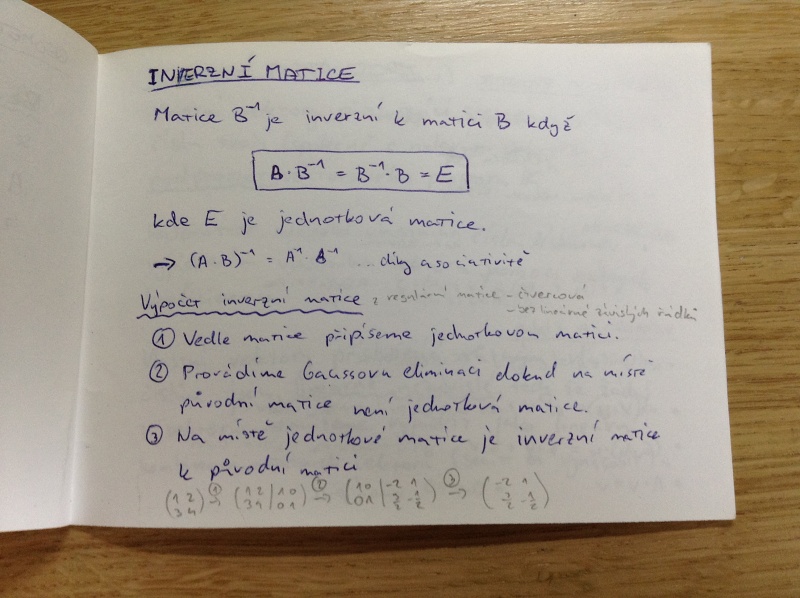 INVERZNÍ MATICE
Matice B⁻¹ je inverzní k matici B když
B·B⁻¹ = B⁻¹·B = E
kde E je jednotková matice.
→ (A·B)⁻¹ = A⁻¹·B⁻¹ ...díky asociativitě
Výpočet inverzní matice z regulární matice - čtvercová
- bez lineárně závislých řádků
① Vedle matice připíšeme jednotkovou matici.
② Provádíme Gaussovu eliminaci dokud na místě
původní matice není jednotková matice.
③ Na místě jednotkové matice je inverzní matice
k původní matici
(1 2 ① (1 2 | 1 0 ② (1 0 | -2 1 ③ (-2 1
3 4) → 3 4 | 0 1) → 0 1 | 3/2 -1/2) → 3/2 -1/2)